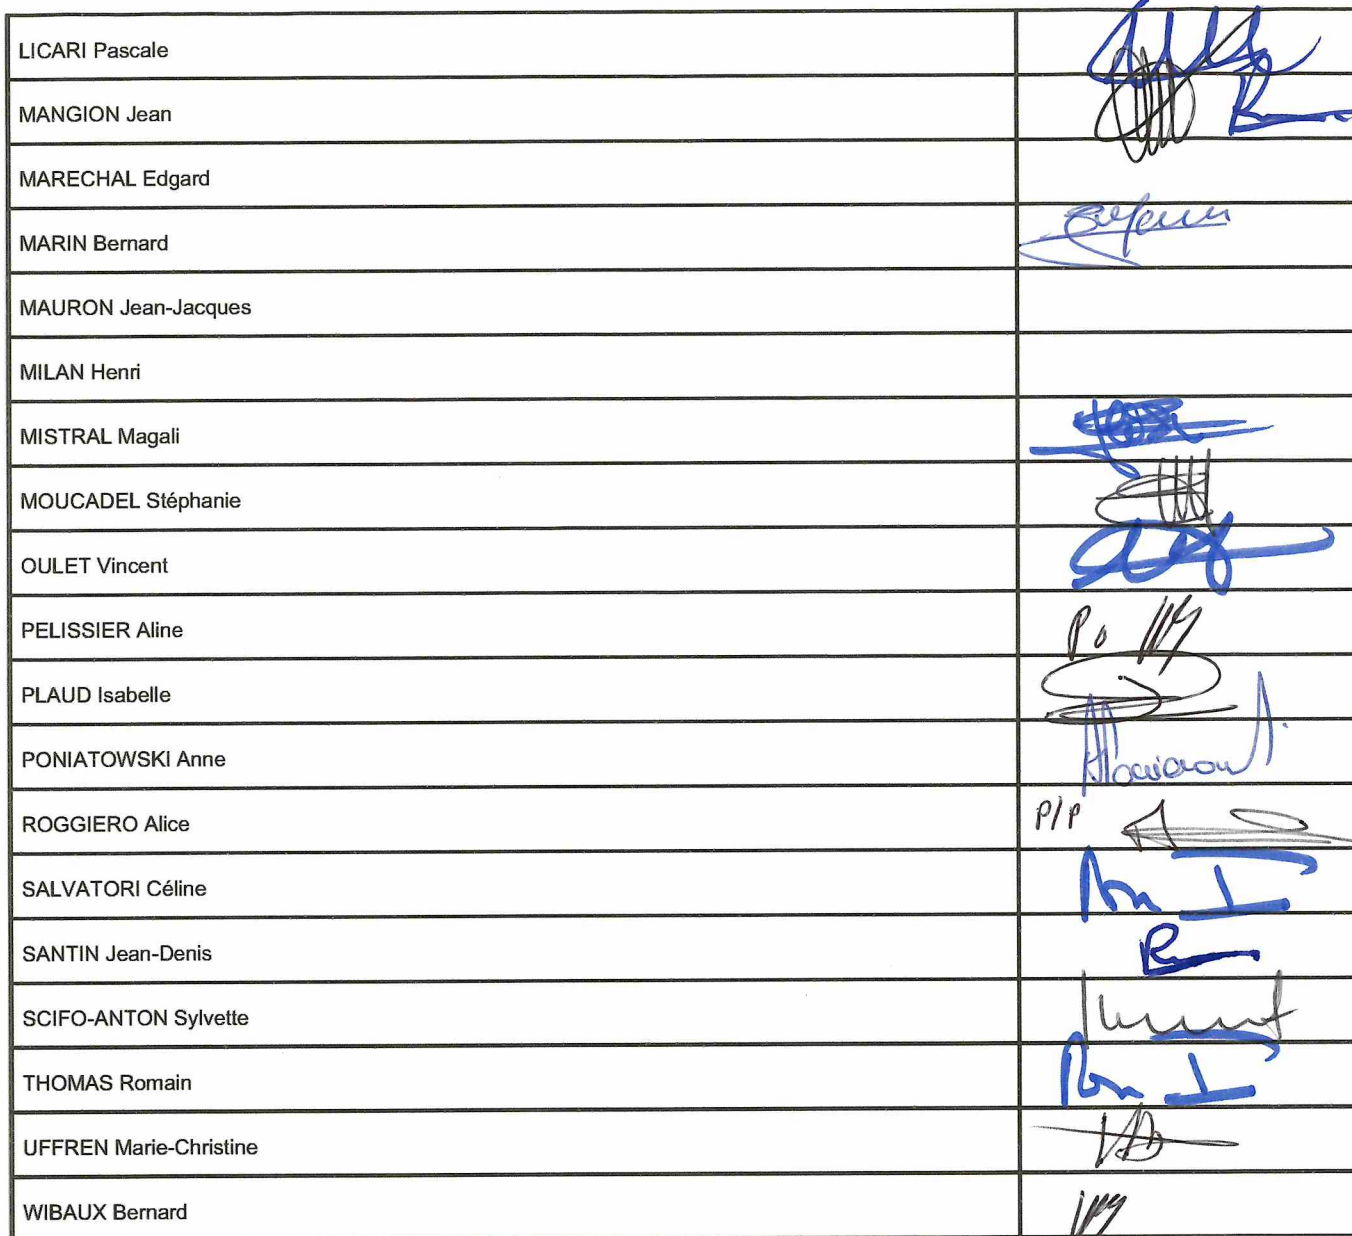 LICARI Pascale
MANGION Jean
MARECHAL Edgard
MARIN Bernard
MAURON Jean-Jacques
MILAN Henri
MISTRAL Magali
MOUCADEL Stéphanie
OULET Vincent
PELISSIER Aline
PLAUD Isabelle
PONIATOWSKI Anne
ROGGIERO Alice P/P
SALVATORI Céline
SANTIN Jean-Denis
SCIFO-ANTON Sylvette
THOMAS Romain
UFFREN Marie-Christine
WIBAUX Bernard